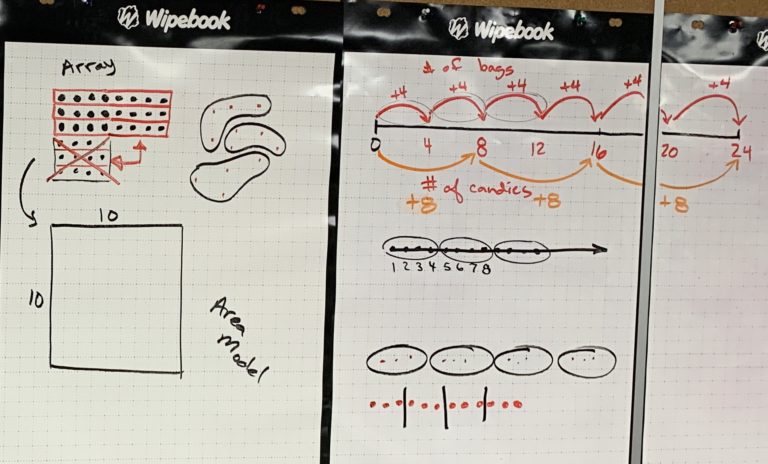 Wipebook
Array
10
10
Area
Model
Wipebook
# of bags
+4 +4 +4 +4 +4 +4
0 4 8 12 16 20 24
# of candies
+8 +8 +8
1 2 3 4 5 6 7 8